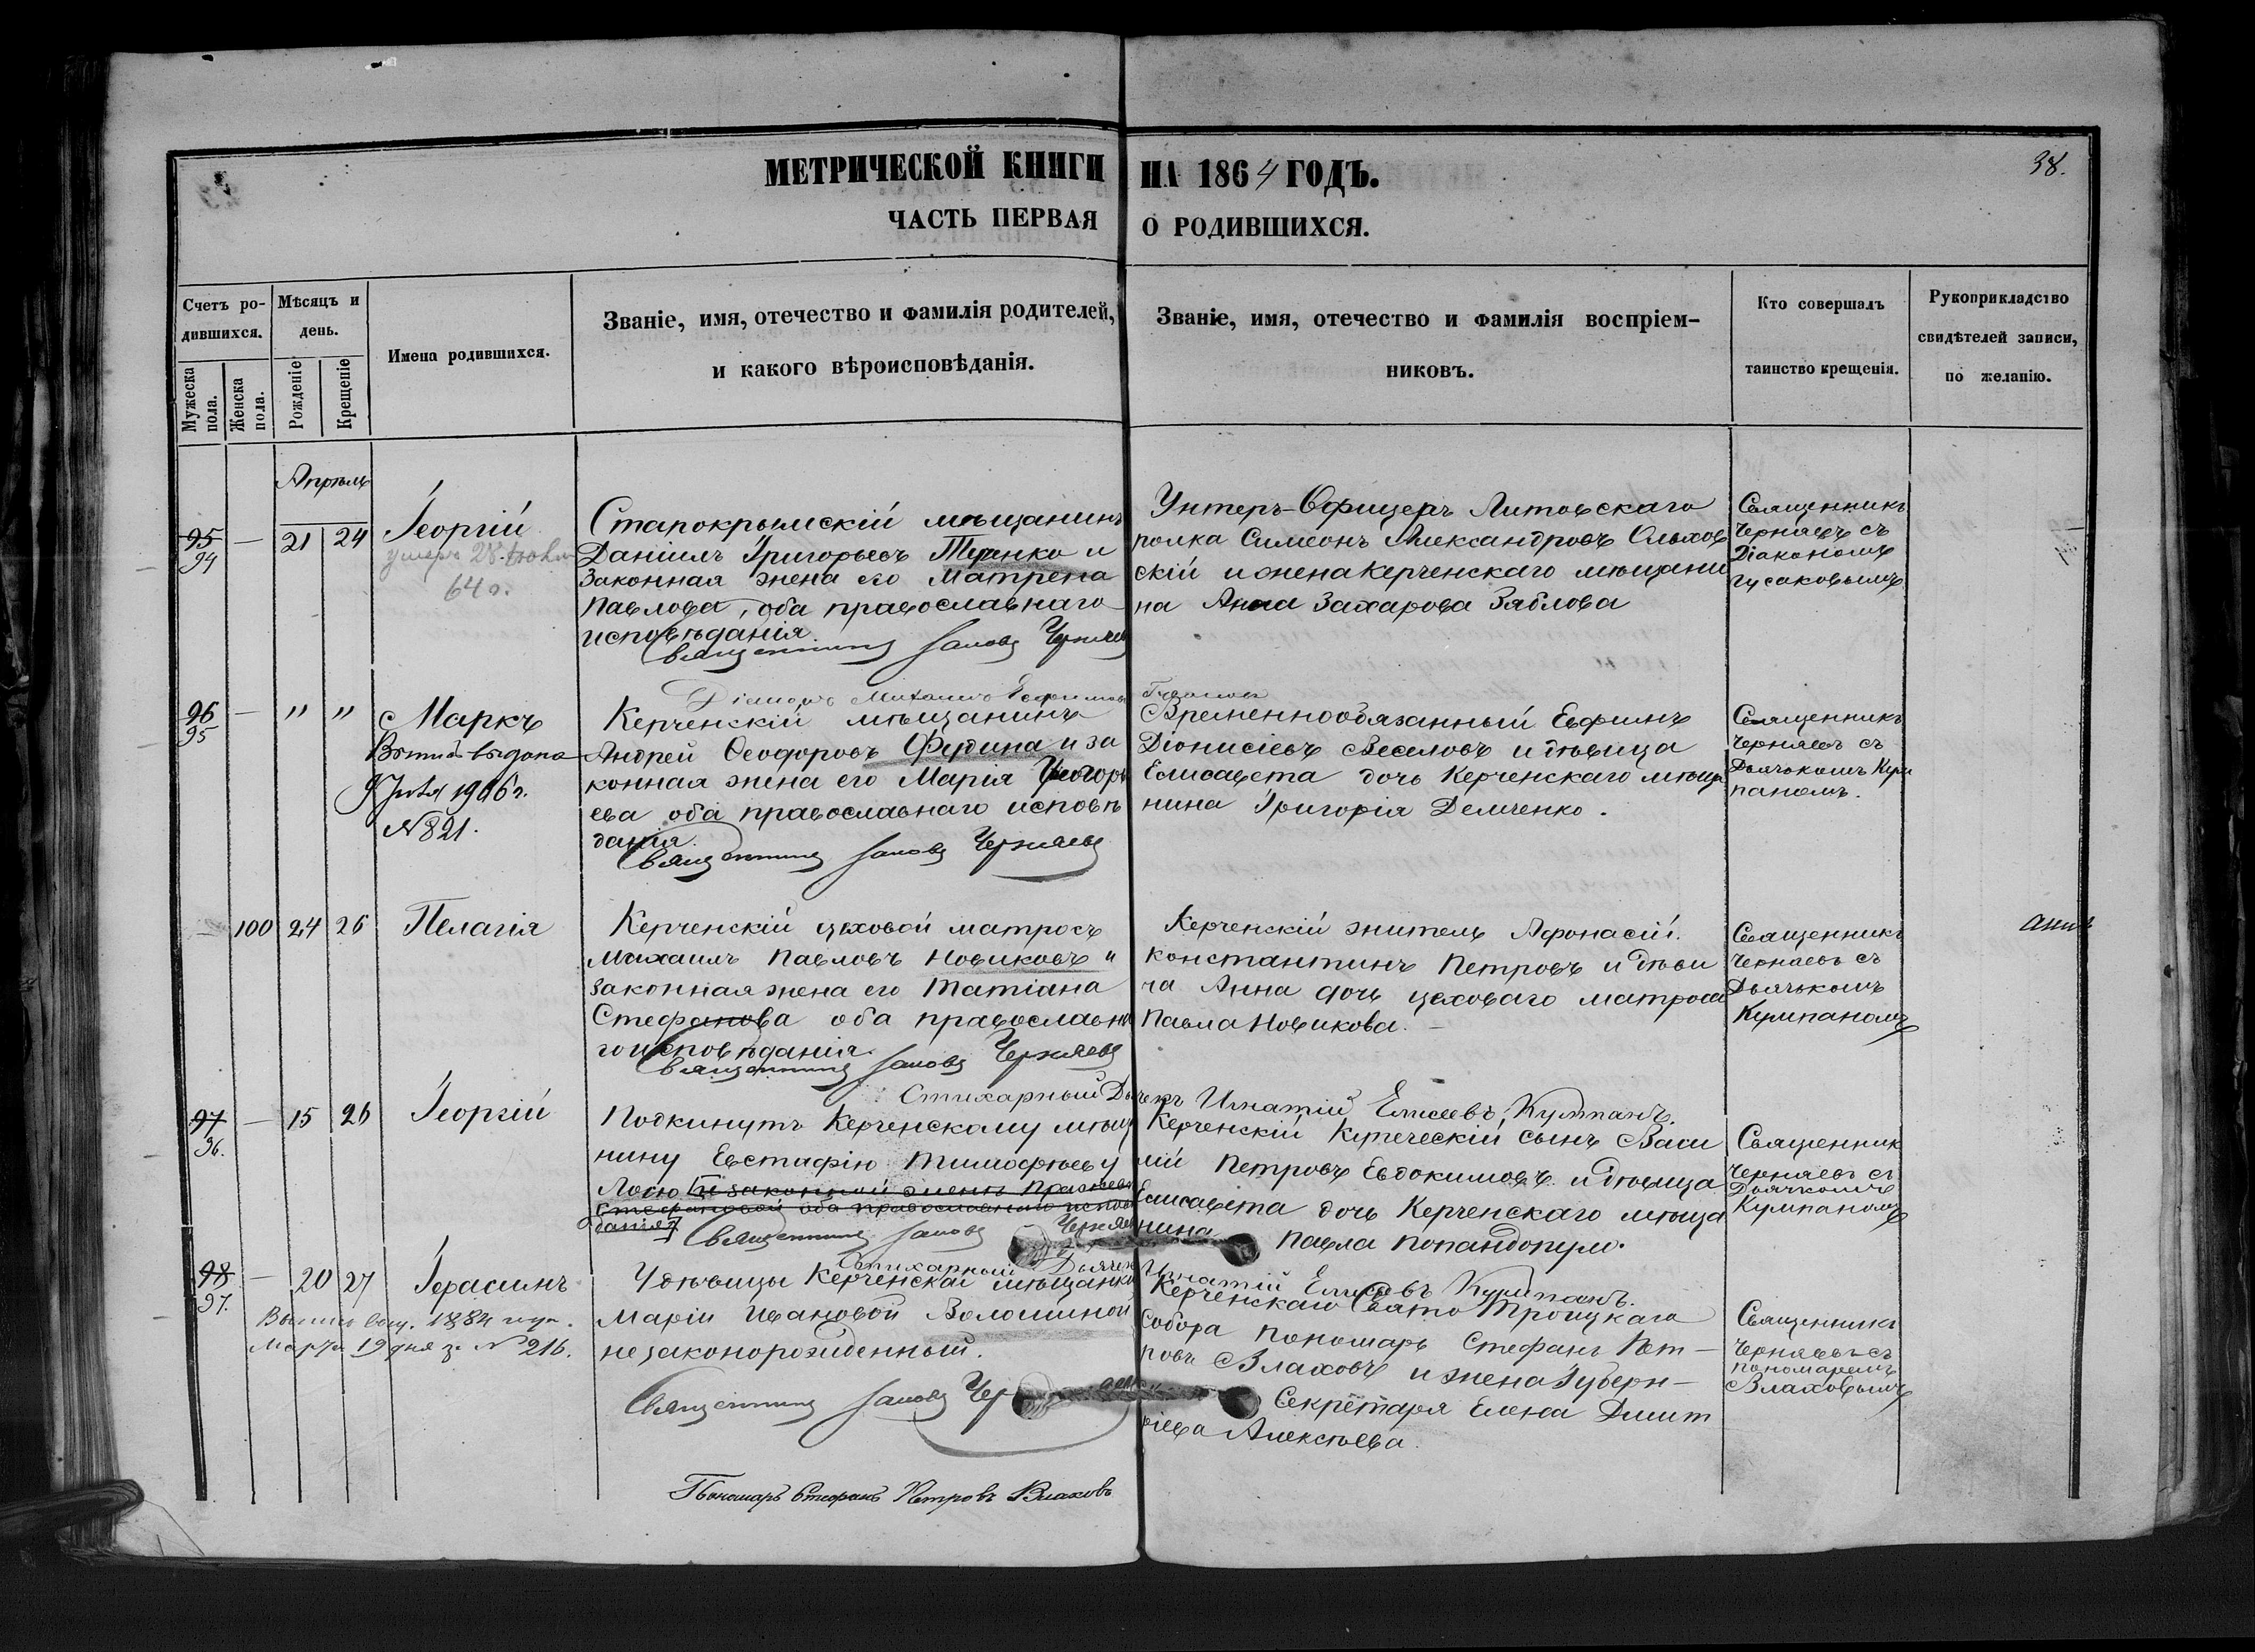 МЕТРИЧЕСКОЙ КНИГИ НА 1864 ГОДЪ.
38.
ЧАСТЬ ПЕРВАЯ О РОДИВШИХСЯ.
Счетъ ро-
дившихся.
Мужеска пола.
Женска пола.
Мѣсяцъ и
день.
Рожденіе
Крещеніе
Имена родившихся.
Званіе, имя, отечество и фамилія родителей,
и какого вѣроисповѣданія.
Званіе, имя, отечество и фамилія воспріем-
никовъ.
Кто совершалъ
таинство крещенія.
Рукоприкладство
свидѣтелей записи,
по желанію.
Апрѣль
95
94
—
21
24
Георгій
умеръ 28
64 г.
Старокрымскій мѣщанинъ
Даніилъ Григорьевъ и
законная жена его Матрена
Павлова, оба православнаго
исповѣданія.
Священникъ Іаковъ Черняевъ
Унтеръ-Офицеръ Литовскаго
полка Симеонъ Александровъ Ольхов
скій и жена Керченскаго мѣщани
на Анна Захарова Зяблова
Священникъ
Черняевъ съ
Діакономъ
Гусаковымъ
Діаконъ Михаилъ Ефимовъ Гусаковъ
96
95
—
"
"
Маркъ
выдана
9 1906 г.
№ 821.
Керченскій мѣщанинъ
Андрей Ѳеодоровъ Фудина и за
конная жена его Марія Григорь
ева оба православнаго исповѣ
данія.
Священникъ Іаковъ Черняевъ
Временнообязанный Евфимъ
Діонисіевъ Веселовъ и дѣвица
Елисавета дочь Керченскаго мѣща
нина Григорія Демченко.
Священникъ
Черняевъ съ
Дьячькомъ Кум
паномъ.
—
100
24
26
Пелагія
Керченскій цѣховой матросъ
Михаилъ Павловъ Новиковъ и
законная жена его Татіана
Стефанова оба православна
го исповѣданія.
Священникъ Іаковъ Черняевъ
Керченскій житель Афонасій
Константинъ Петровъ и дѣви
ца Анна дочь цеховаго матроса
Павла Новикова. —
Священникъ
Черняевъ съ
Дьячькомъ
Кумпаномъ
Стихарный Дьячекъ Игнатій Елисеевъ Кумпанъ.
97
96.
—
15
26
Георгій
Подкинутъ Керченскому мѣща
нину Евстафію Тимофѣеву
Лосю и законной женѣ
Стефановой оба православнаго исповѣ
данія
Священникъ Іаковъ Черняевъ
Керченскій Купеческій сынъ Васи
лій Петровъ Евдокимовъ и дѣвица
Елисавета дочь Керченскаго мѣща
нина Павла Попандопуло.
Священник
Черняевъ съ
Дьячкомъ
Кумпаномъ
Стихарный Дьячекъ Игнатій Елисеевъ Кумпанъ.
98
97.
—
20
27
Герасимъ
1884 года.
Марта 19 дня за № 216.
У дѣвицы Керченской мѣщанки
Маріи Ивановой Волошиной
незаконорожденный.
Священникъ Іаковъ Чер
Керченскаго Свято Троицкаго
Собора пономарь Стефанъ Пет-
ровъ Влаховъ и жена Губерн-
Секретаря Елена Дмит
ріева Алексѣева.
Священникъ
Черняевъ съ
пономаремъ
Влаховымъ
Пономарь Стефанъ Петровъ Влаховъ